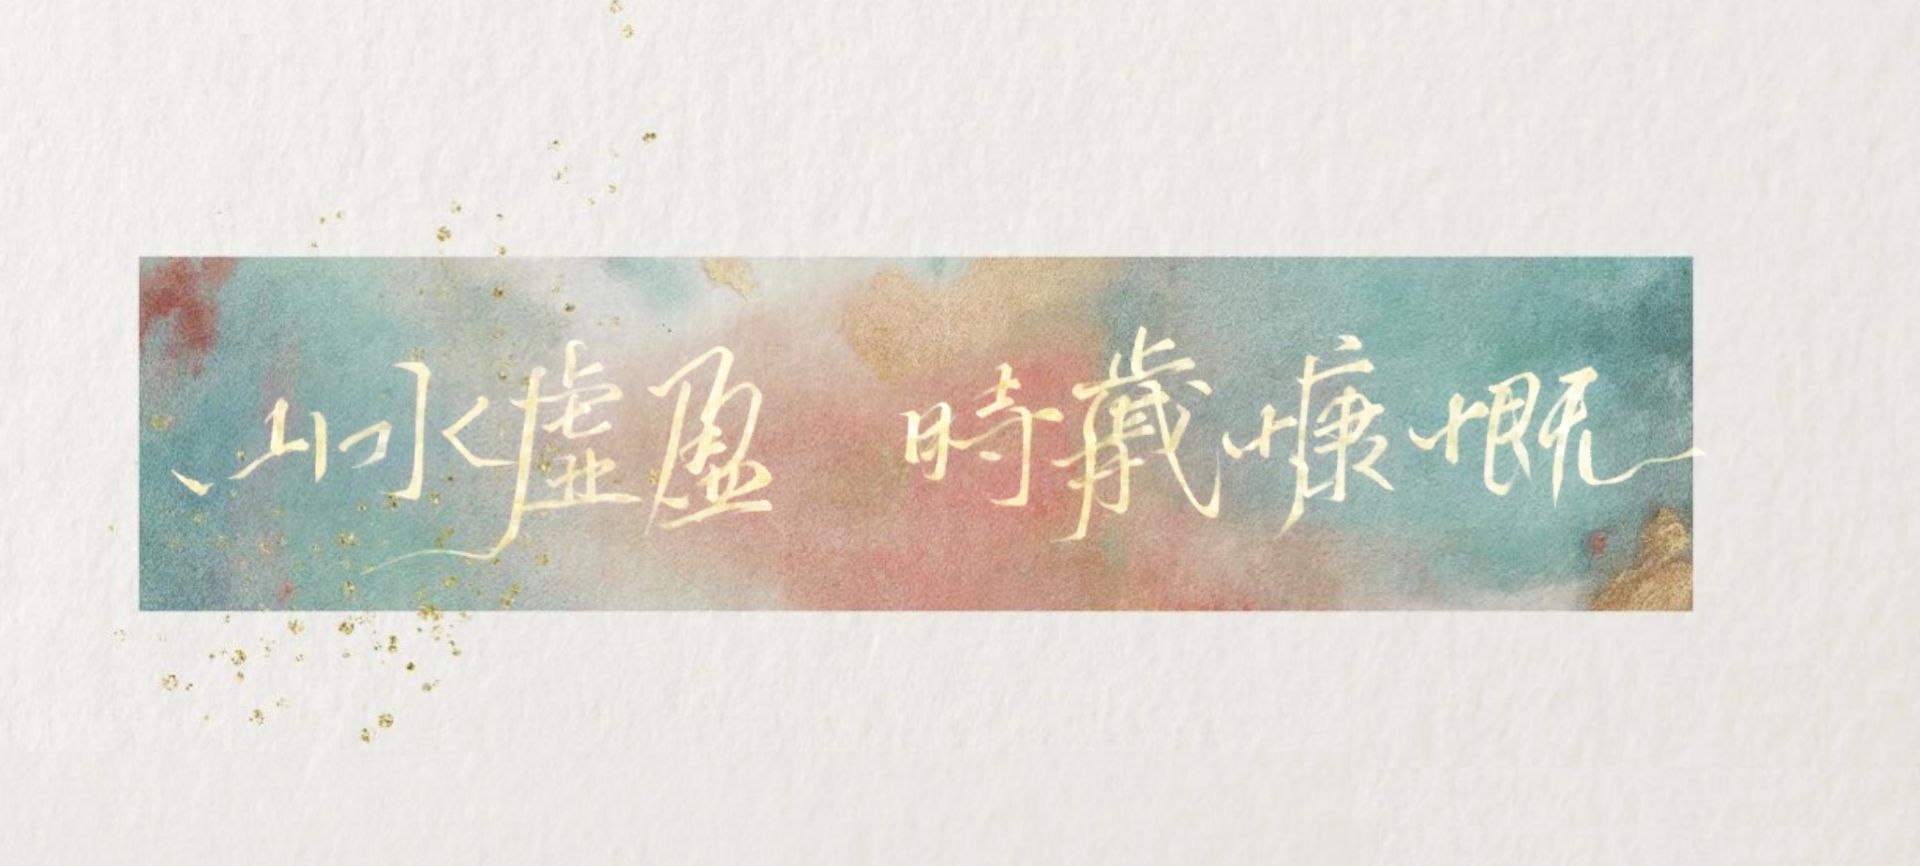 山水虛盈 時歲慷慨